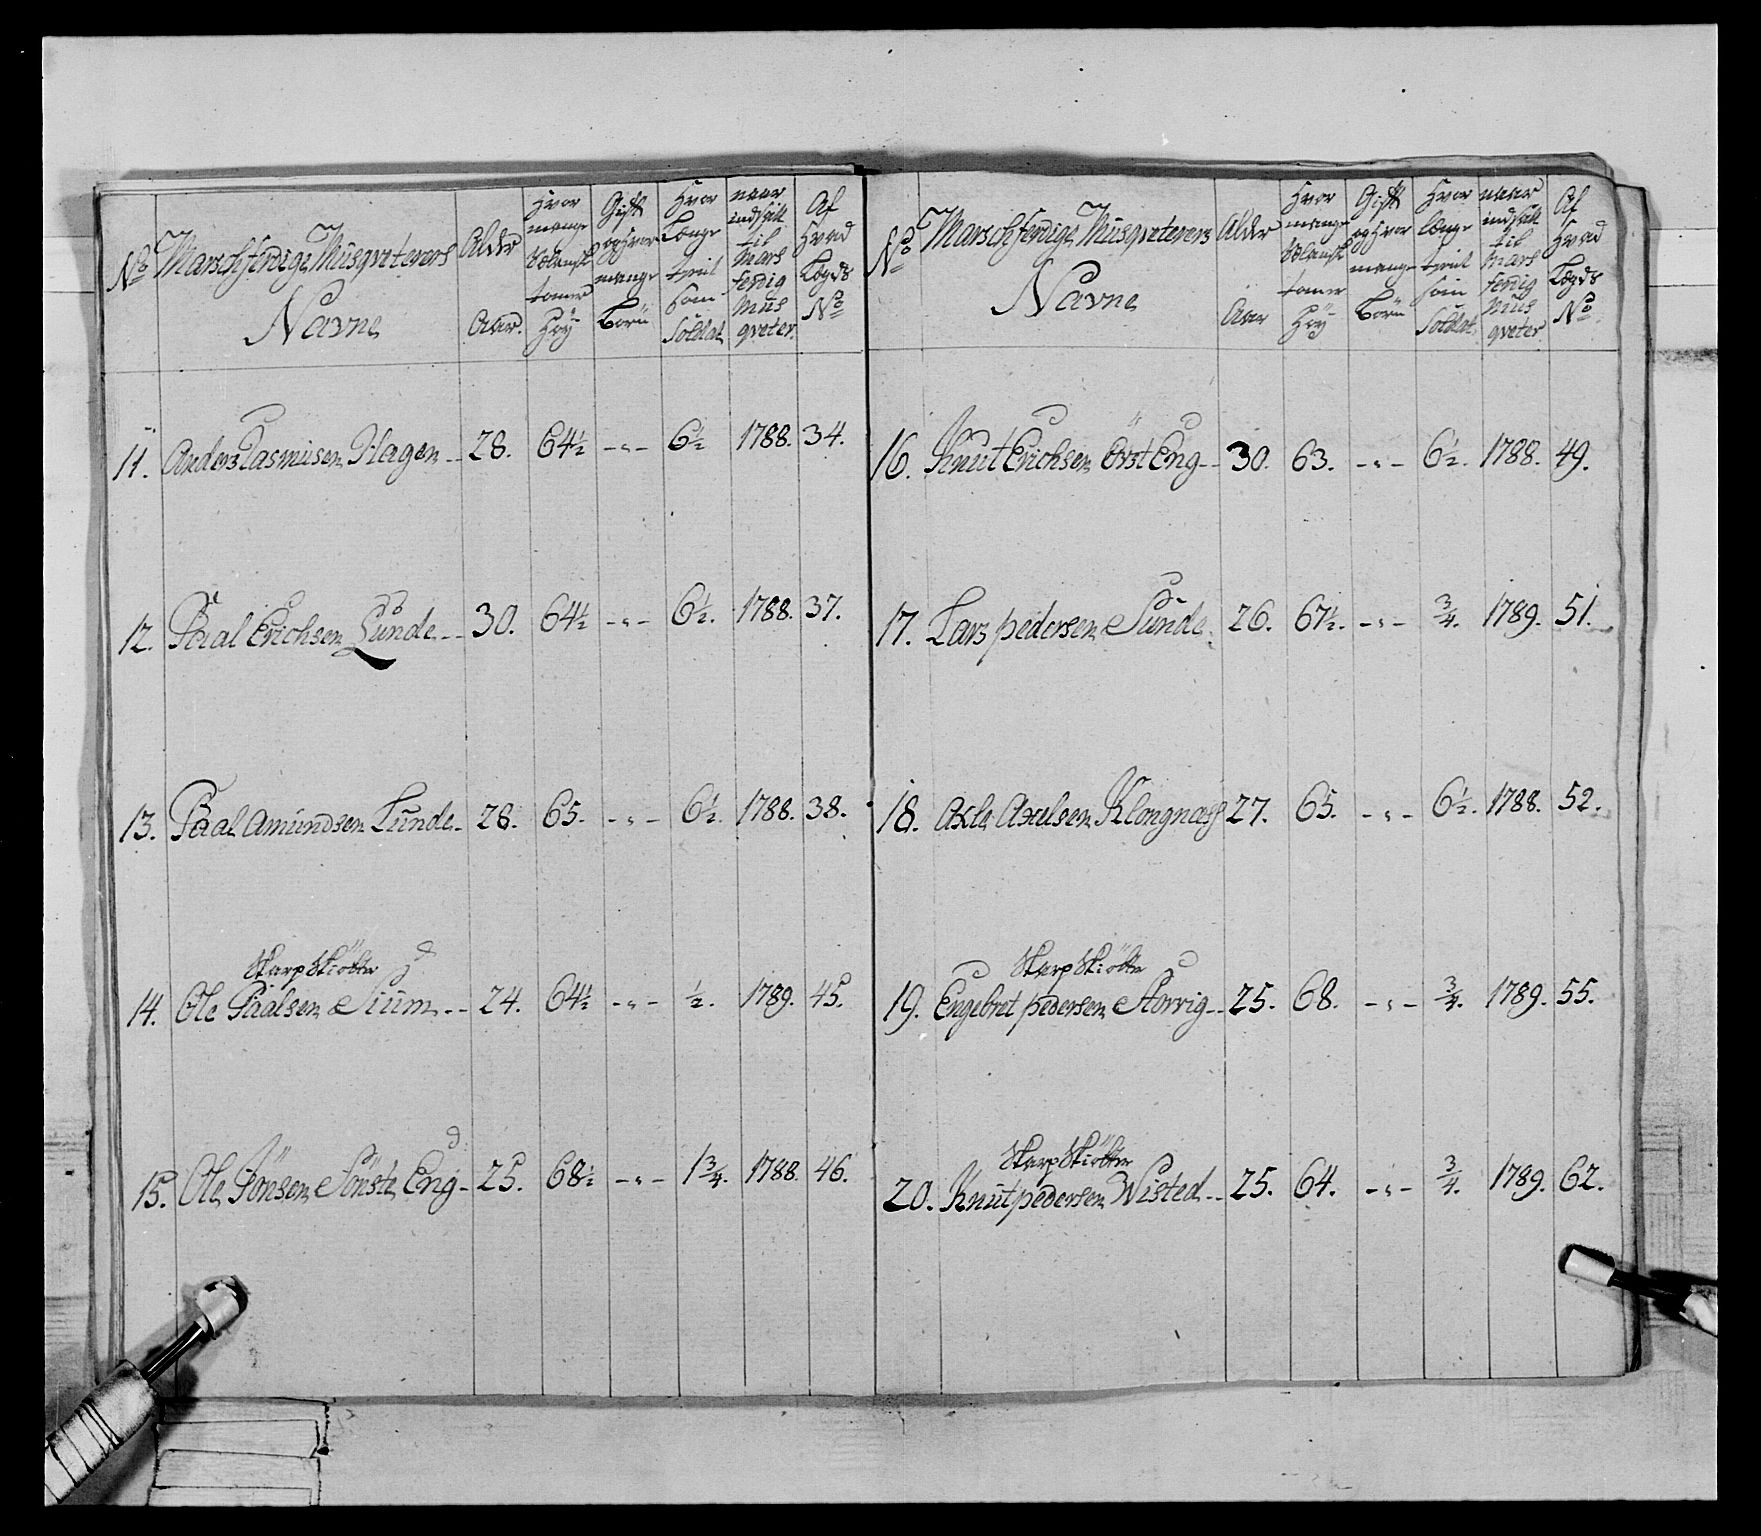 No
Marschferdige Musqveterers
Navne
Alder
Aar.
Hvor
mange
Sælansk
tomer
Høy
Gift
og Hvor
mange
Børn
Hvor
Længe
tient
som
Soldat
naar
indsatt
til
Mars
ferdig
Mus
qveter.
Af
Hvad
Lægds
No
11. Anders Rasmusen Hagen -- 28. 64½ -"- 6½ 1788. 34.
12. Paal Erichsen Lunde -- 30. 64½ -"- 6½. 1788. 37.
13. Paal Amundsen Lunde. 28. 65. -"- 6½. 1788. 38.
Skarp Skiötter
14. Ole Paalsen Sium -- 24. 64½ -"- ½. 1789. 45.
15. Ole Jönsen Sönste Eng - 25. 68½ -"- 1¾. 1788. 46.
No
Marschferdige Musqveterers
Navne
Alder
Aar
Hvor
mange
Sælansk
tomer
Høy
Gift
og Hvor
mange
Børn
Hvor
længe
tient
som
Soldat
naar
indsatt
til
Mars
ferdig
Mus
qveter
Af
Hvad
Lægds
No
16. Knut Erichsen Örst Eng -- 30. 63. -"- 6½. 1788. 49.
17. Lars pedersen Sunde. 26. 67½. -"- ¾. 1789. 51.
18. Axle Axelsen Klongnæss 27. 65. -"- 6½. 1788. 52.
Skarp Skiötter
19. Engebret pedersen Storvig -- 25. 68. -"- ¾. 1789. 55.
Skarp Skiötter
20. Knut pedersen Wisted -- 25. 64. -"- ¾. 1789. 62.